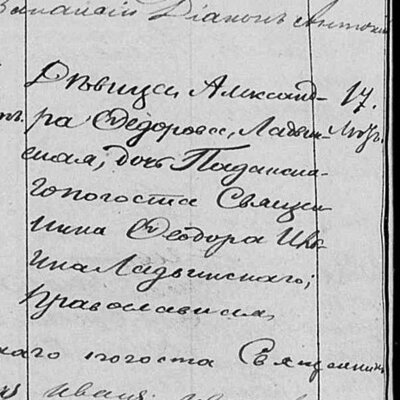 Діаконъ Антоній
Дѣвица Александ- 17.
ра Ѳедорова, Ладвин-
ская, дочь Паданска-
го погоста Священ-
ника Ѳеодора
Ладвинскаго;
Православная,
скаго погоста Священник
Иванъ